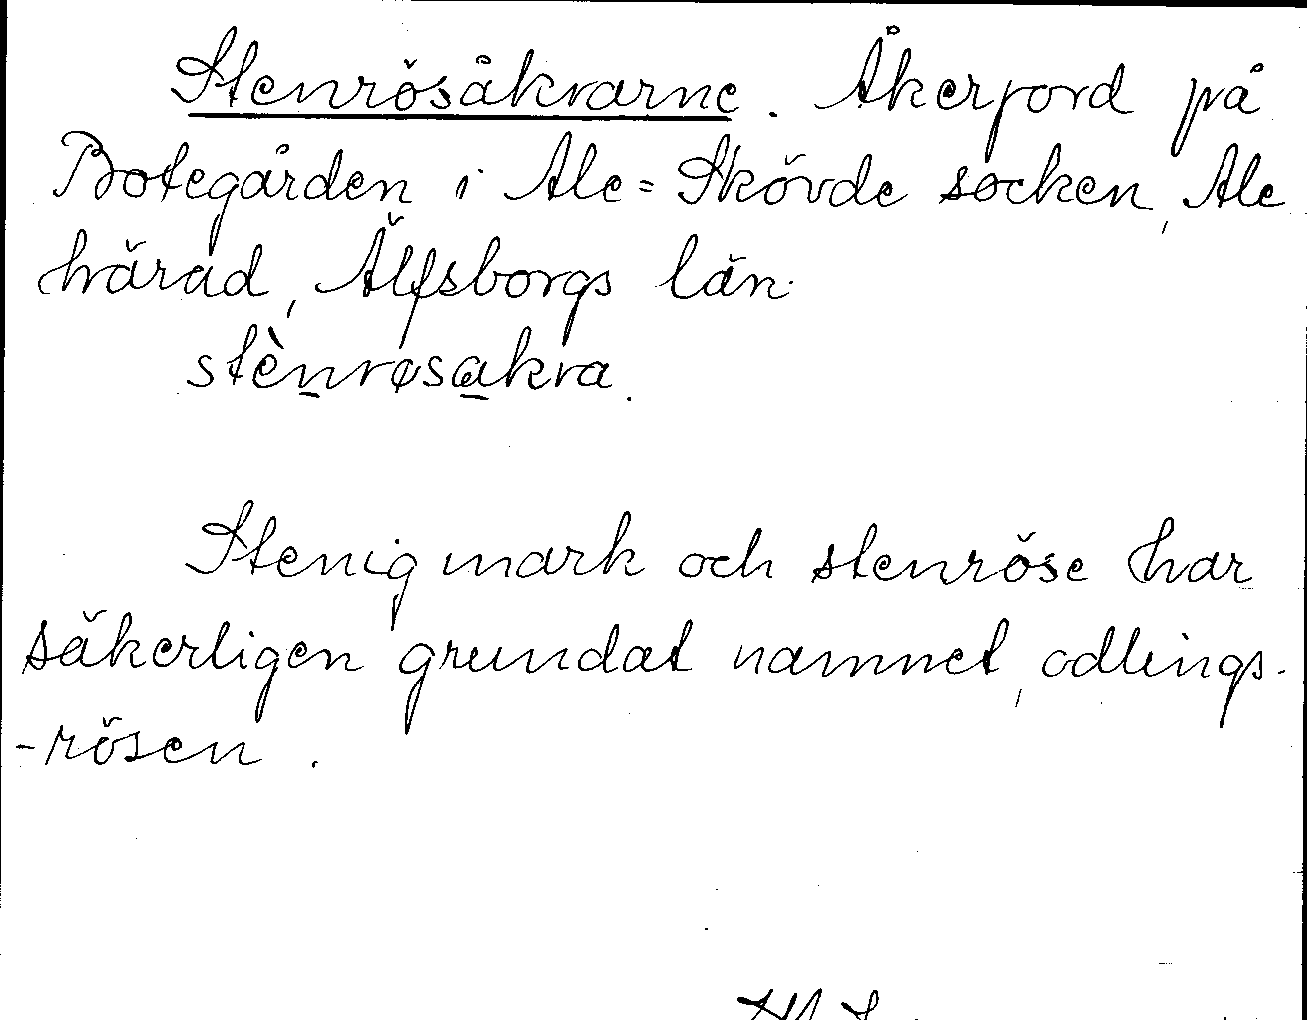 Stenrösåkrarne. Åkerjord på
Botegården i Ale=Skövde socken, Ale
härad, Älfsborgs län.
stènrøsakra.
Stenig mark och stenröse har
säkerligen grundat namnet, odlings-
-rösen.